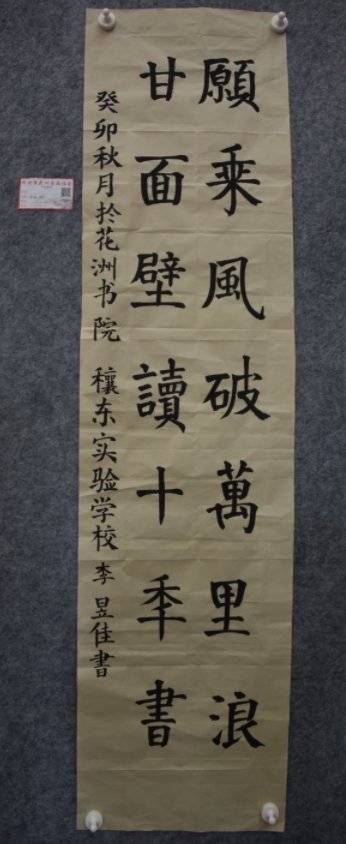 願乘風破萬里浪
甘面壁讀十年書
癸卯秋月於花洲书院 穰东实验学校 李昱佳書